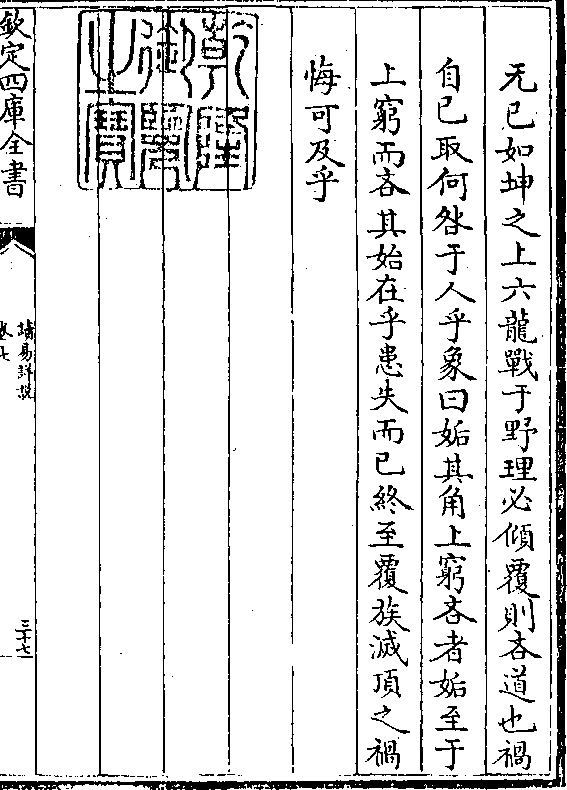 无已如坤之上六龍戰于野理必傾覆則吝道也禍
自已取何咎于人乎象曰姤其角上窮吝者姤至于
上窮而吝其始在乎患失而已終至覆族滅頂之禍
悔可及乎
乾隆御覽之寶
欽定四庫全書
讀易詳說
卷七
三十七